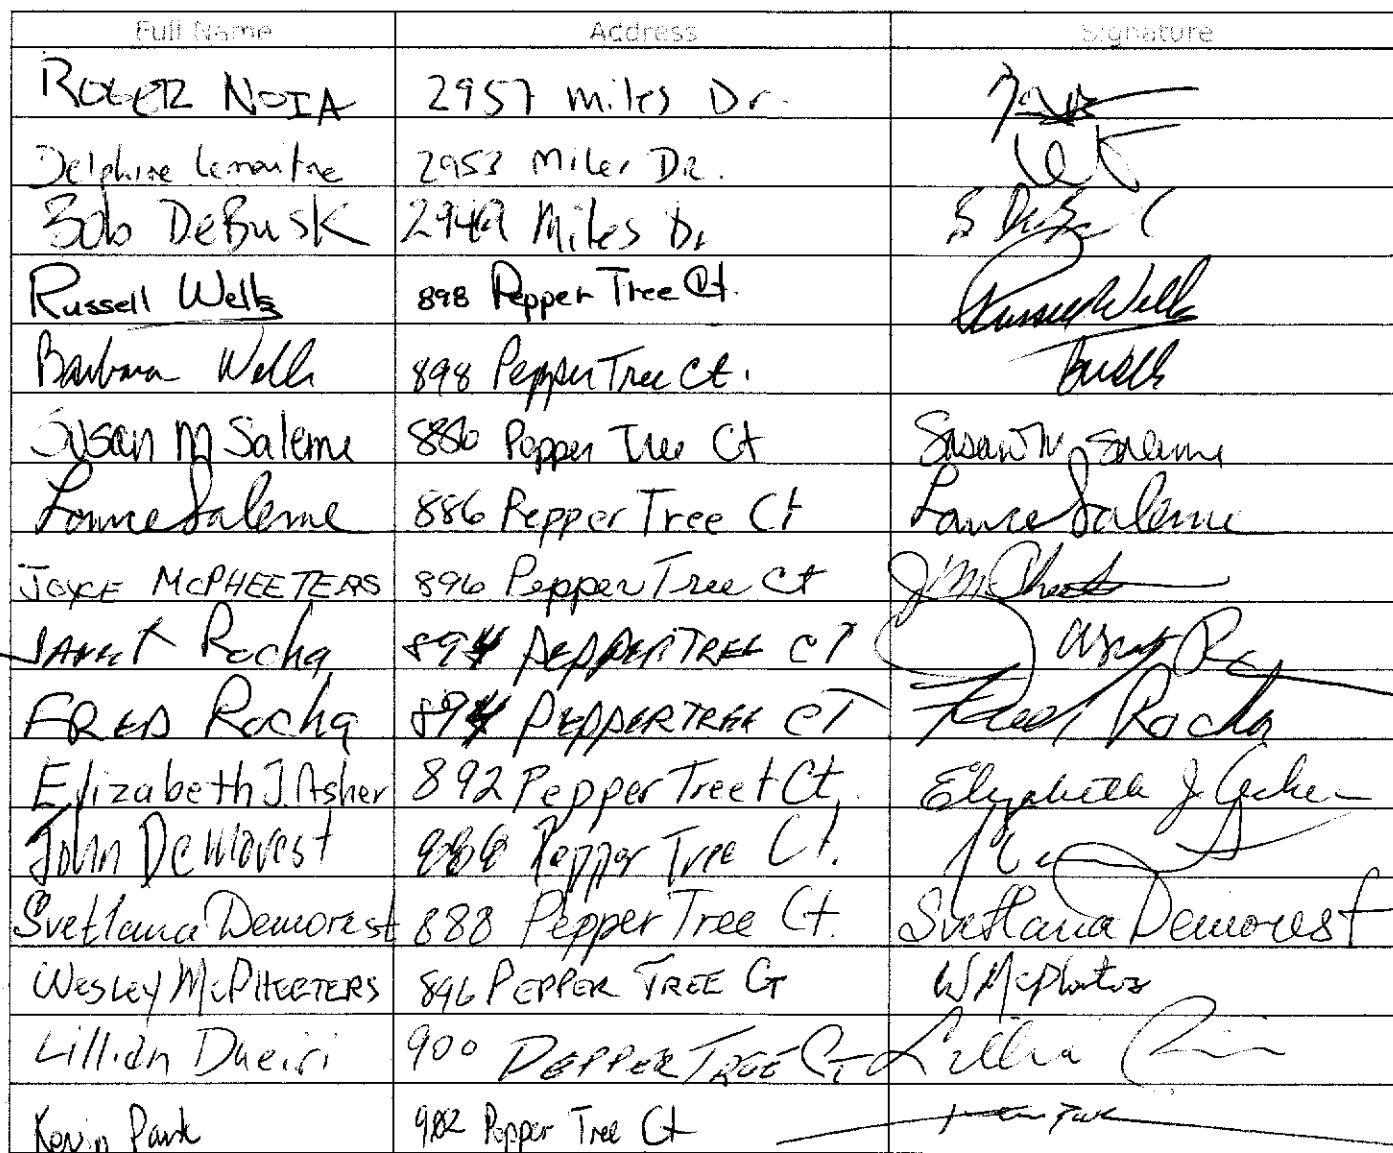 Full Name Address Signature
ROGER NOIA 2957 Miles Dr.
Delphine Lemaitre 2953 Miles DR.
Bob DeBusk 2949 Miles Dr
Russell Wells 898 Pepper Tree Ct. Russell Wells
Barbara Wells 898 Pepper Tree Ct. BWells
Susan M Saleme 886 Pepper Tree Ct Susan M Saleme
Lance Saleme 886 Pepper Tree Ct Lance Saleme
JOYCE McPHEETERS 896 Pepper Tree Ct
JANET Rocha 894 PEPPERTREE CT
FRED Rocha 894 PEPPERTREE CT Fred Rocha
Elizabeth J. Asher 892 Pepper Treet Ct. Elizabeth J. Asher
John Demorest 888 Pepper Tree Ct.
Svetlana Demorest 888 Pepper Tree Ct. Svetlana Demorest
WESLEY McPHEETERS 896 PEPPER TREE CT W McPheeters
Lillian Dueiri 900 PEPPER TREE CT Lillia
Kevin Park 902 Pepper Tree Ct